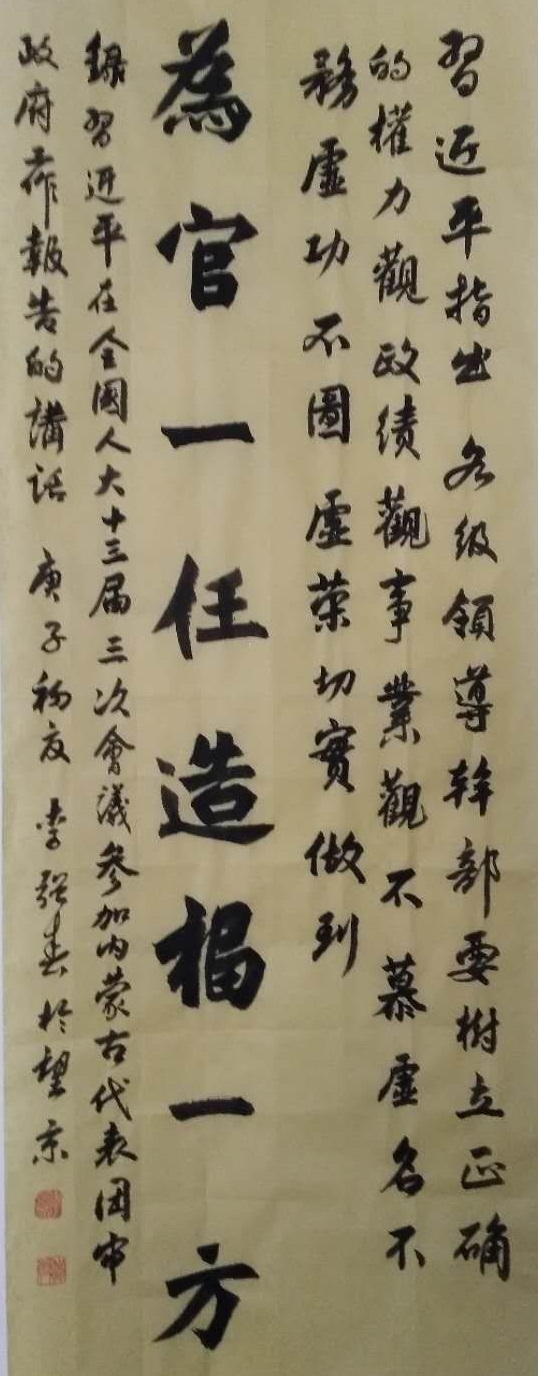 習近平指出各級領導幹部要樹立正确
的權力觀政绩觀事業觀不慕虛名不
務虛功不圖虛荣切實做到
為官一任造福一方
録習近平在全國人大十三届三次會議參加内蒙古代表团审
政府工作報告的講话 庚子初夏 李强春於望京